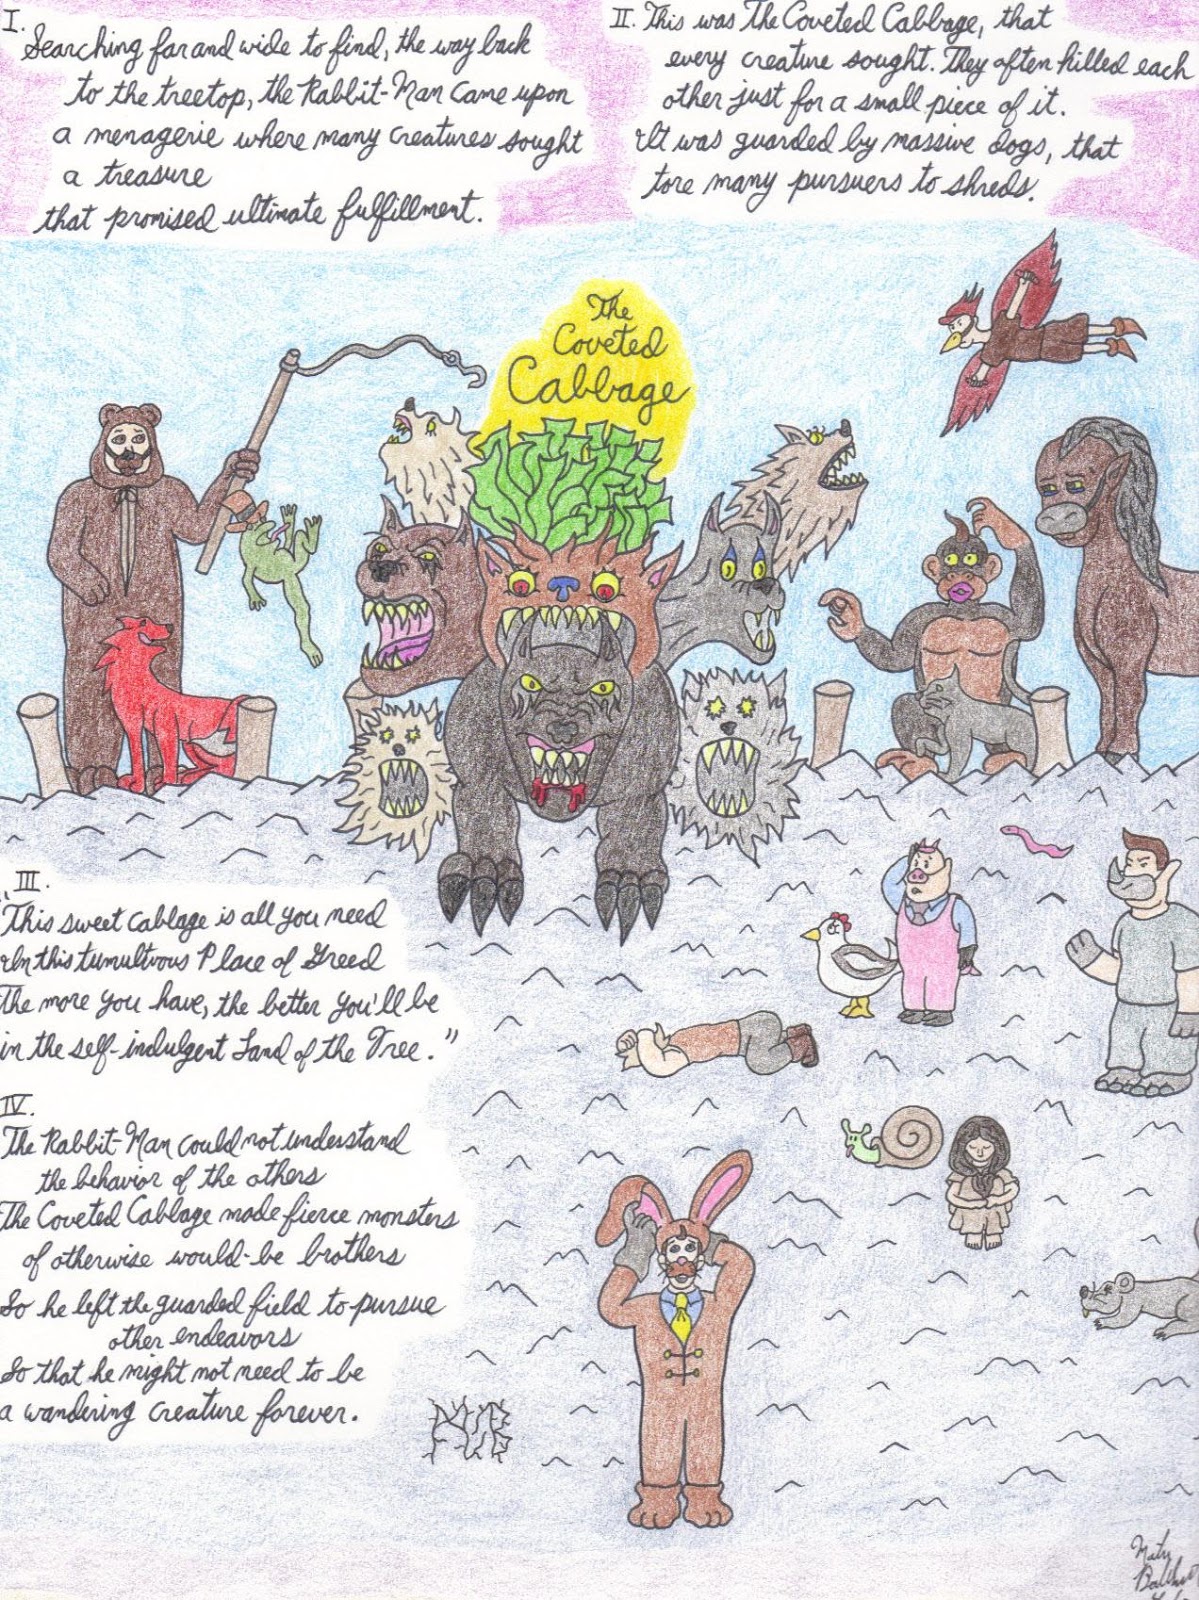 I.
Searching far and wide to find, the way back
to the treetop, the Rabbit-Man came upon
a menagerie where many creatures sought
a treasure
that promised ultimate fulfillment.
II. This was The Coveted Cabbage, that
every creature sought. They often killed each
other just for a small piece of it.
It was guarded by massive dogs, that
tore many pursuers to shreds.
The
Coveted
Cabbage
III.
"This sweet cabbage is all you need
In this tumultuous Place of Greed
The more you have, the better you'll be
in the self-indulgent Land of the Tree."
IV.
The Rabbit-Man could not understand
the behavior of the others
The Coveted Cabbage made fierce monsters
of otherwise would-be brothers
So he left the guarded field to pursue
other endeavors
So that he might not need to be
a wandering creature forever.